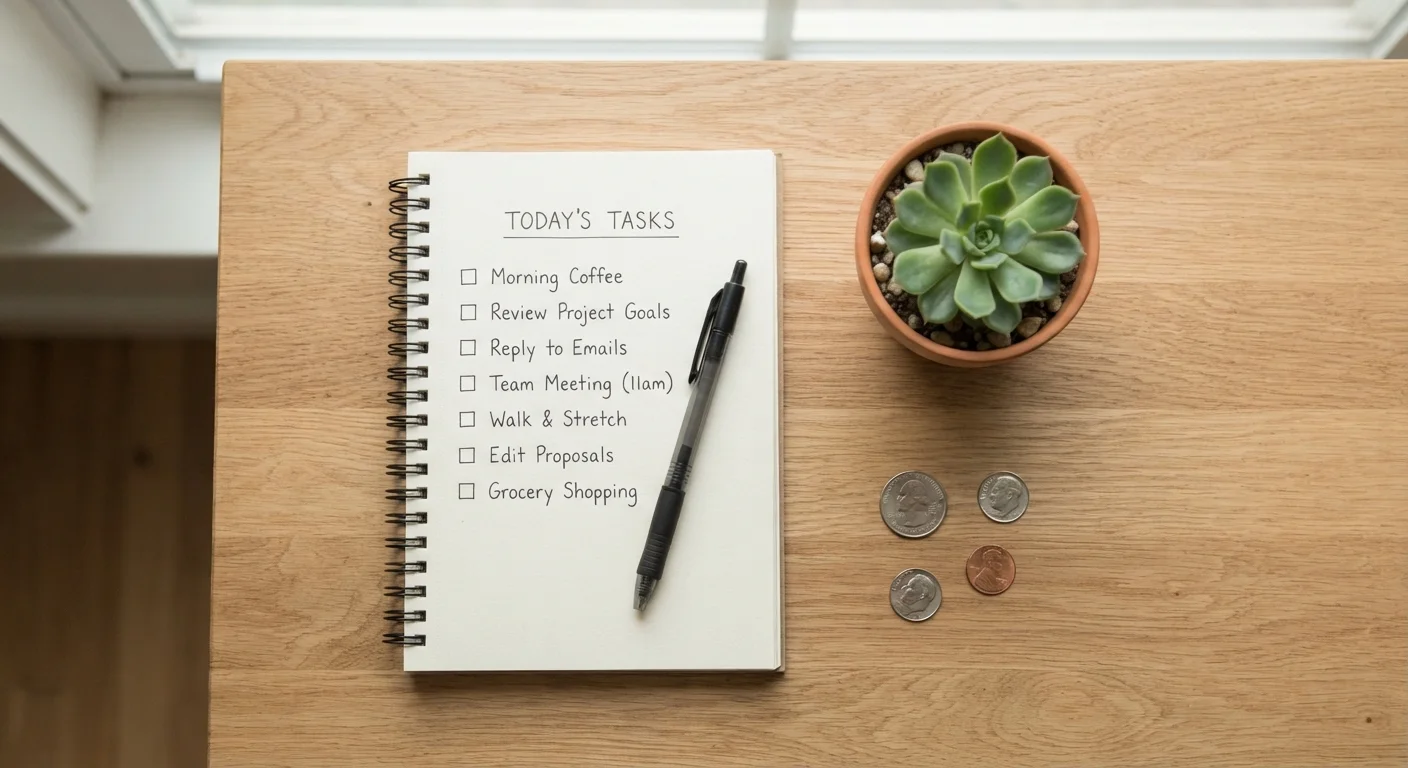 TODAY'S TASKS
☐ Morning Coffee
☐ Review Project Goals
☐ Reply to Emails
☐ Team Meeting (11am)
☐ Walk & Stretch
☐ Edit Proposals
☐ Grocery Shopping